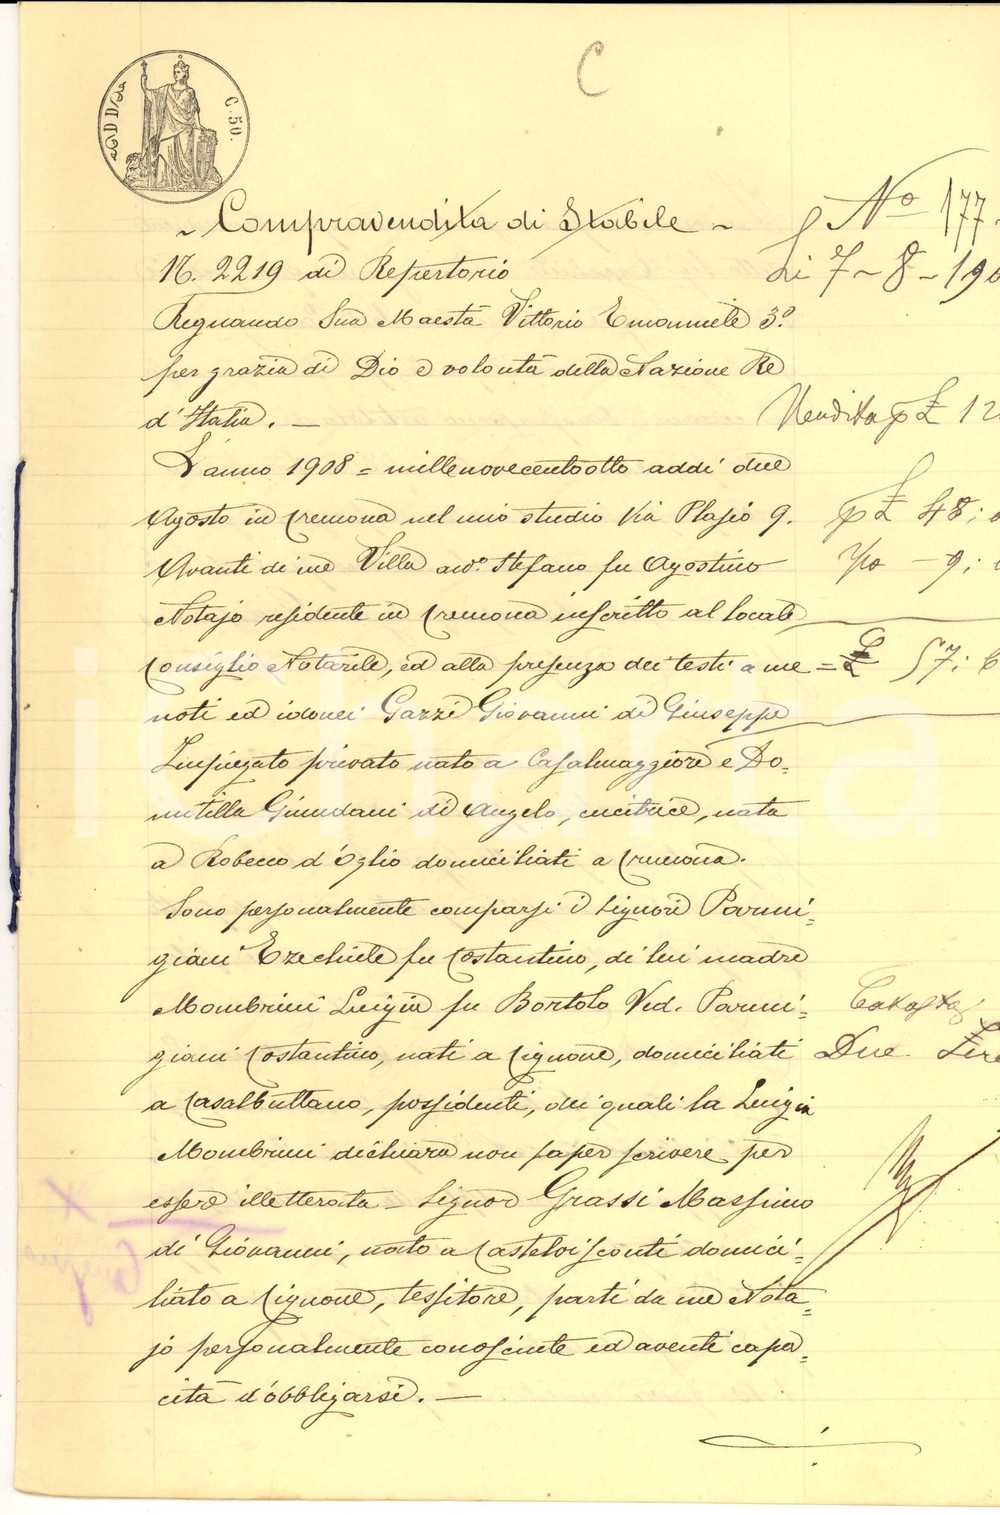 C
C. 50.
~ Compravendita di Stabile ~
N. 2219 di Repertorio
Regnando Sua Maestà Vittorio Emanuele 3º
per grazia di Dio e volontà della Nazione Re
d'Italia. —
L'anno 1908 = millenovecentootto addì due
Agosto in Cremona nel mio studio Via Plasio 9.
Avanti di me Villa avvº. Stefano fu Agostino
Notajo residente in Cremona inscritto al locale
Consiglio Notarile, ed alla presenza dei testi a me
noti ed idonei Gazzi Giovanni di Giuseppe
Impiegato privato nato a Casalmaggiore e Do=
mitilla Giundani di Angelo, cucitrice, nata
a Robecco d'Oglio domiciliati a Cremona.
Sono personalmente comparsi i Signori Parmi=
giani Ezechiele fu Costantino, di lui madre
Mombrini Luigia fu Bortolo Ved. Parmi=
giani Costantino, nati a Cignone, domiciliati
a Casalbuttano, possidenti, dei quali la Luigia
Mombrini dichiara non saper scrivere per
essere illetterata – Signor Grassi Massimo
di Giovanni, nato a Castelvisconti domici=
liato a Cignone, tessitore, parti da me Nota=
jo personalmente conosciute ed aventi capa=
cità d'obbligarsi. —
Nº 177.
li 7 – 8 – 190
Vendita p £ 12
p £ 48:
– 9:
= £ 57: 6
Catasto
Due Lire